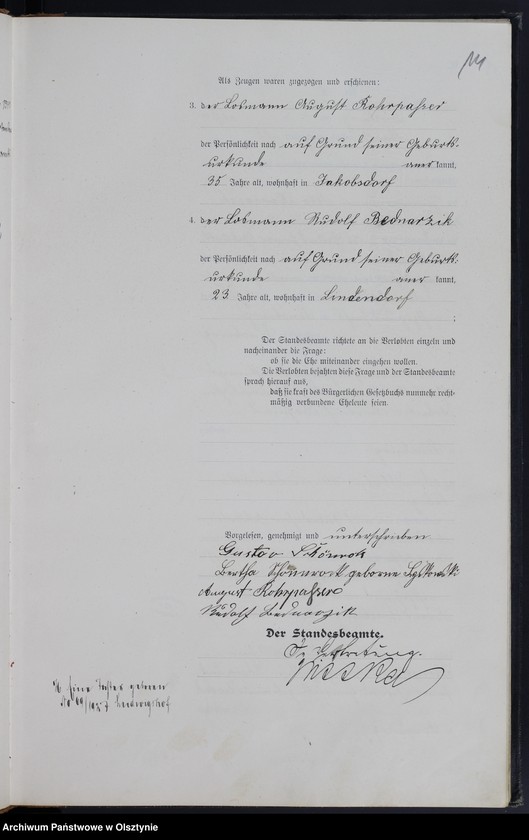 Als Zeugen waren zugezogen und erschienen:
3. der Losmann August Rohrpasser
der Persönlichkeit nach auf Grund seiner Geburts-
urkunde anerkannt,
35 Jahre alt, wohnhaft in Jakobsdorf
4. der Losmann Rudolf Bednarzik
der Persönlichkeit nach auf Grund seiner Geburts-
urkunde anerkannt,
23 Jahre alt, wohnhaft in Lindendorf
;
Der Standesbeamte richtete an die Verlobten einzeln und
nacheinander die Frage:
ob sie die Ehe miteinander eingehen wollen.
Die Verlobten bejahten diese Frage und der Standesbeamte
sprach hierauf aus,
daß sie kraft des Bürgerlichen Gesetzbuchs nunmehr recht-
mäßig verbundene Eheleute seien.
Vorgelesen, genehmigt und unterschrieben
Gustav Schönrock
Bertha Schönnrock geborne
August Rohrpasser
Rudolf Bednarzik
Der Standesbeamte.
In Vertretung.
geboren
Archiwum Państwowe w Olsztynie